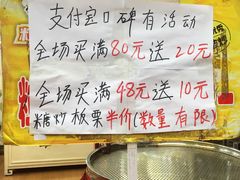 支付宝口碑有活动
全场买满80元送20元
全场买满48元送10元
糖炒板栗半价(数量有限)
糖